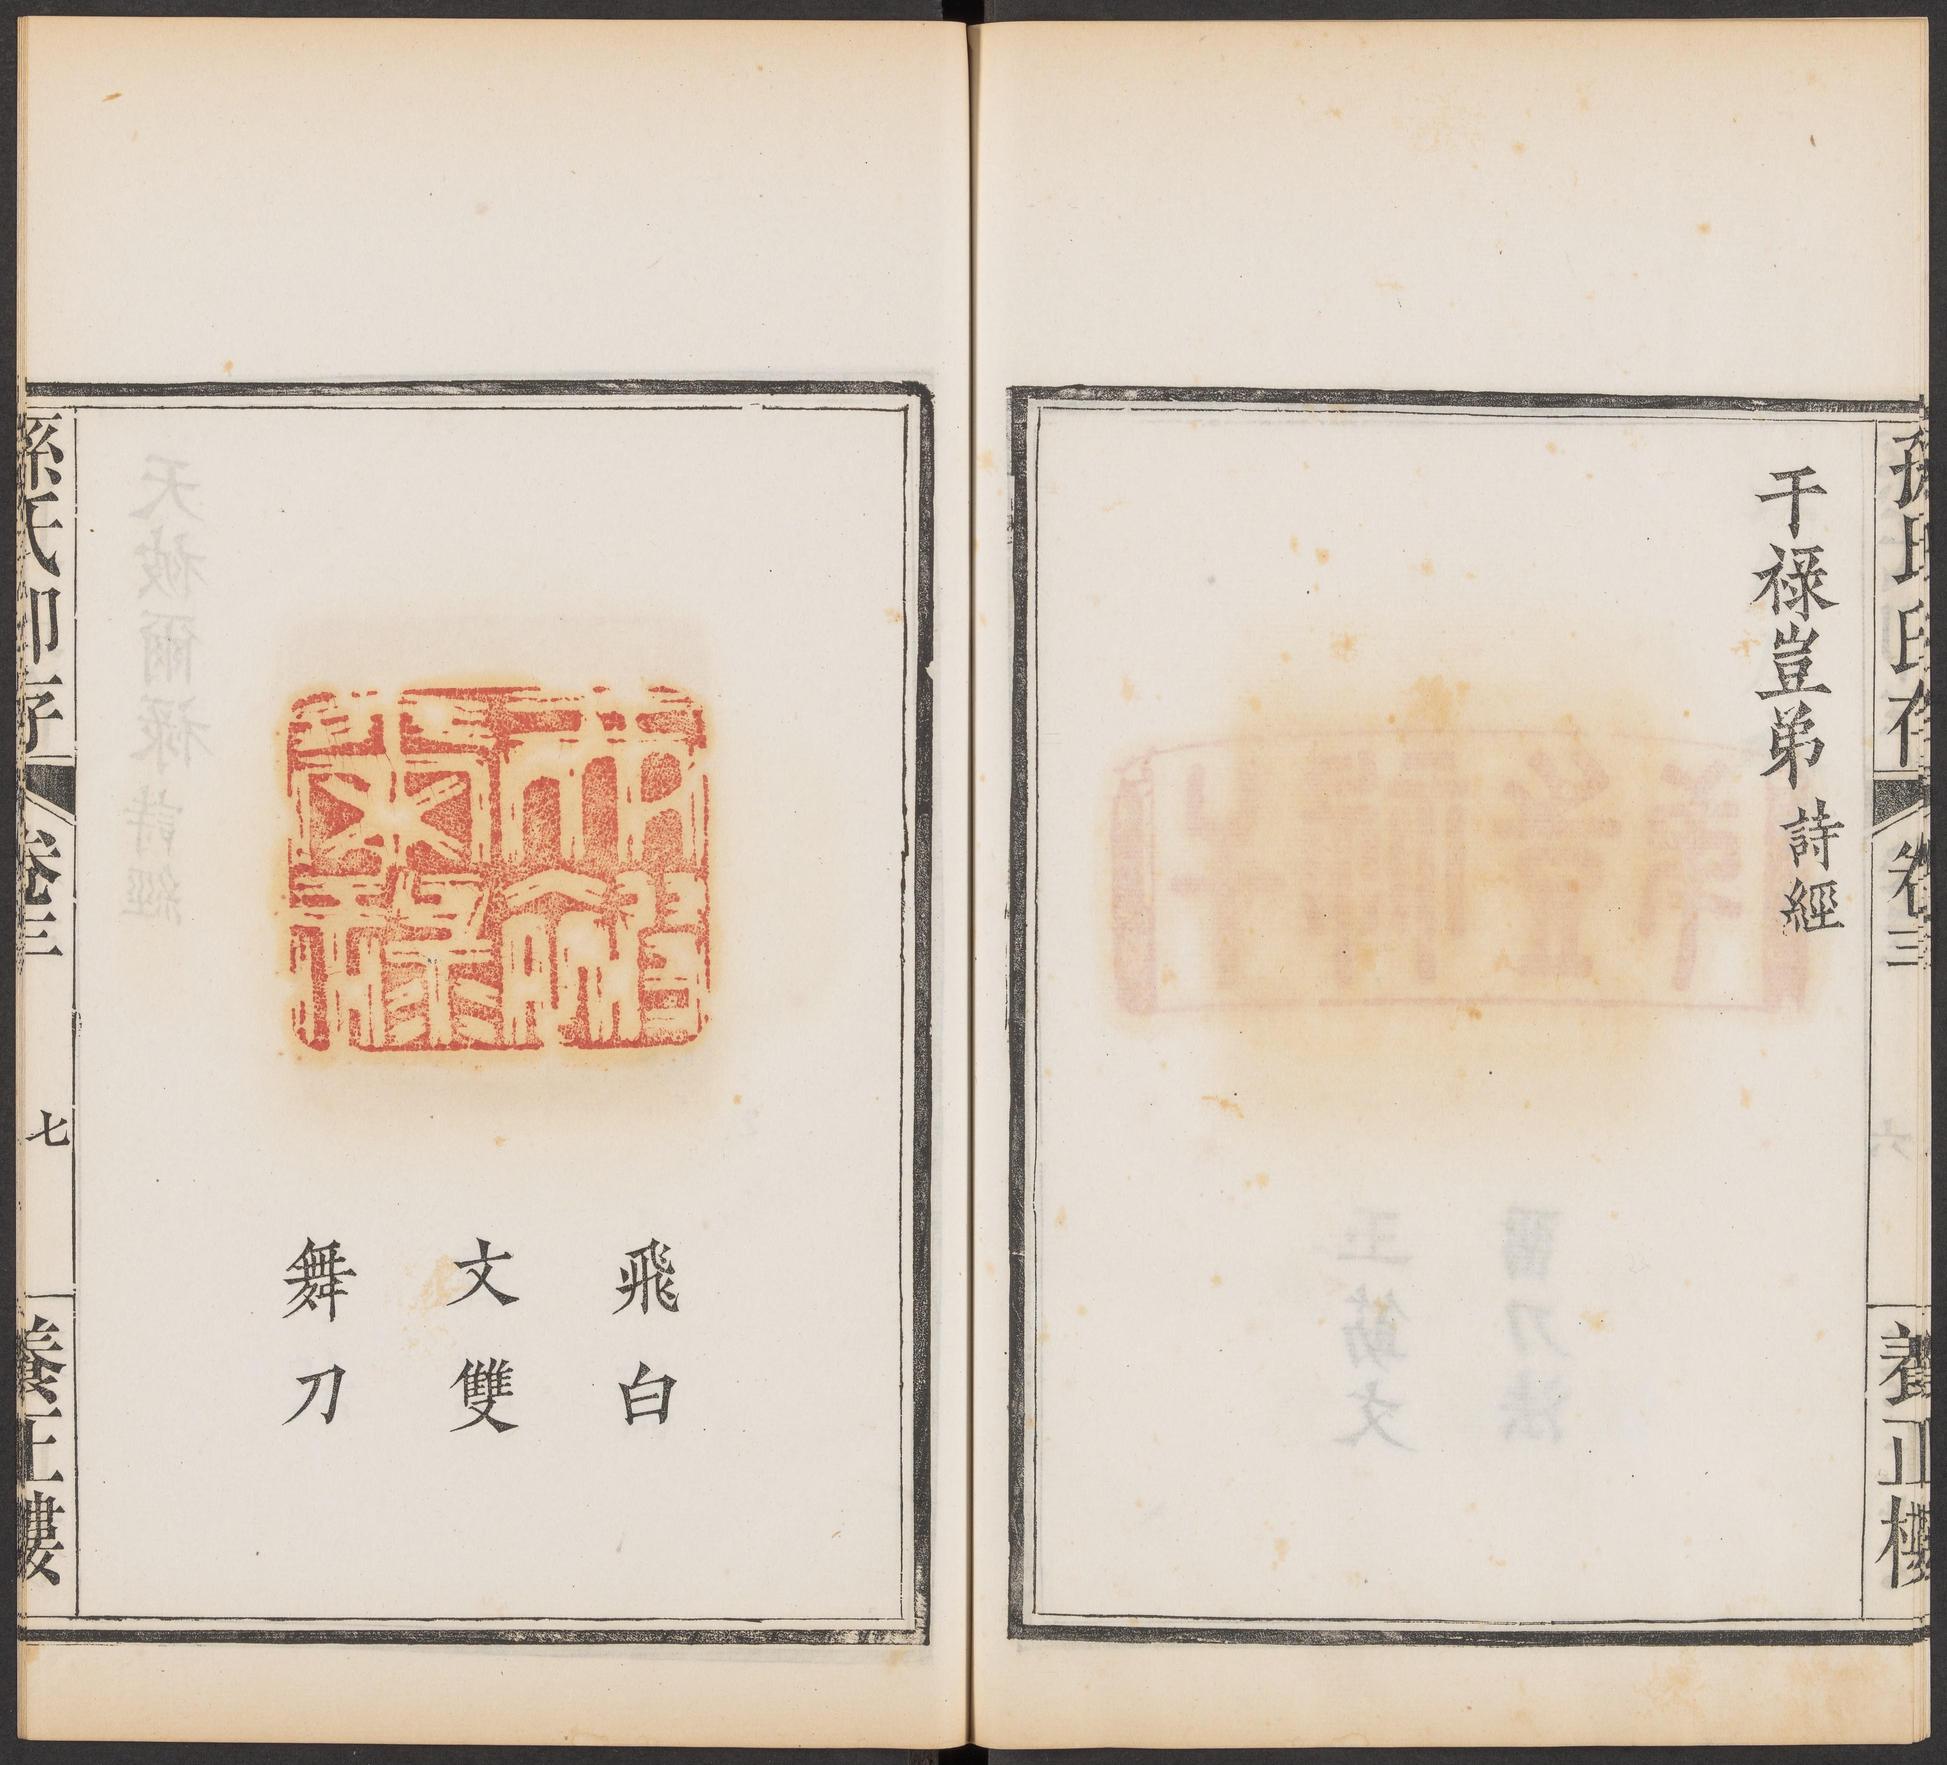 孫氏印存
卷三
養正樓
干祿豈弟 詩經
飛白
文雙
舞刀
天被爾祿
孫氏印存
卷三
七
養正樓